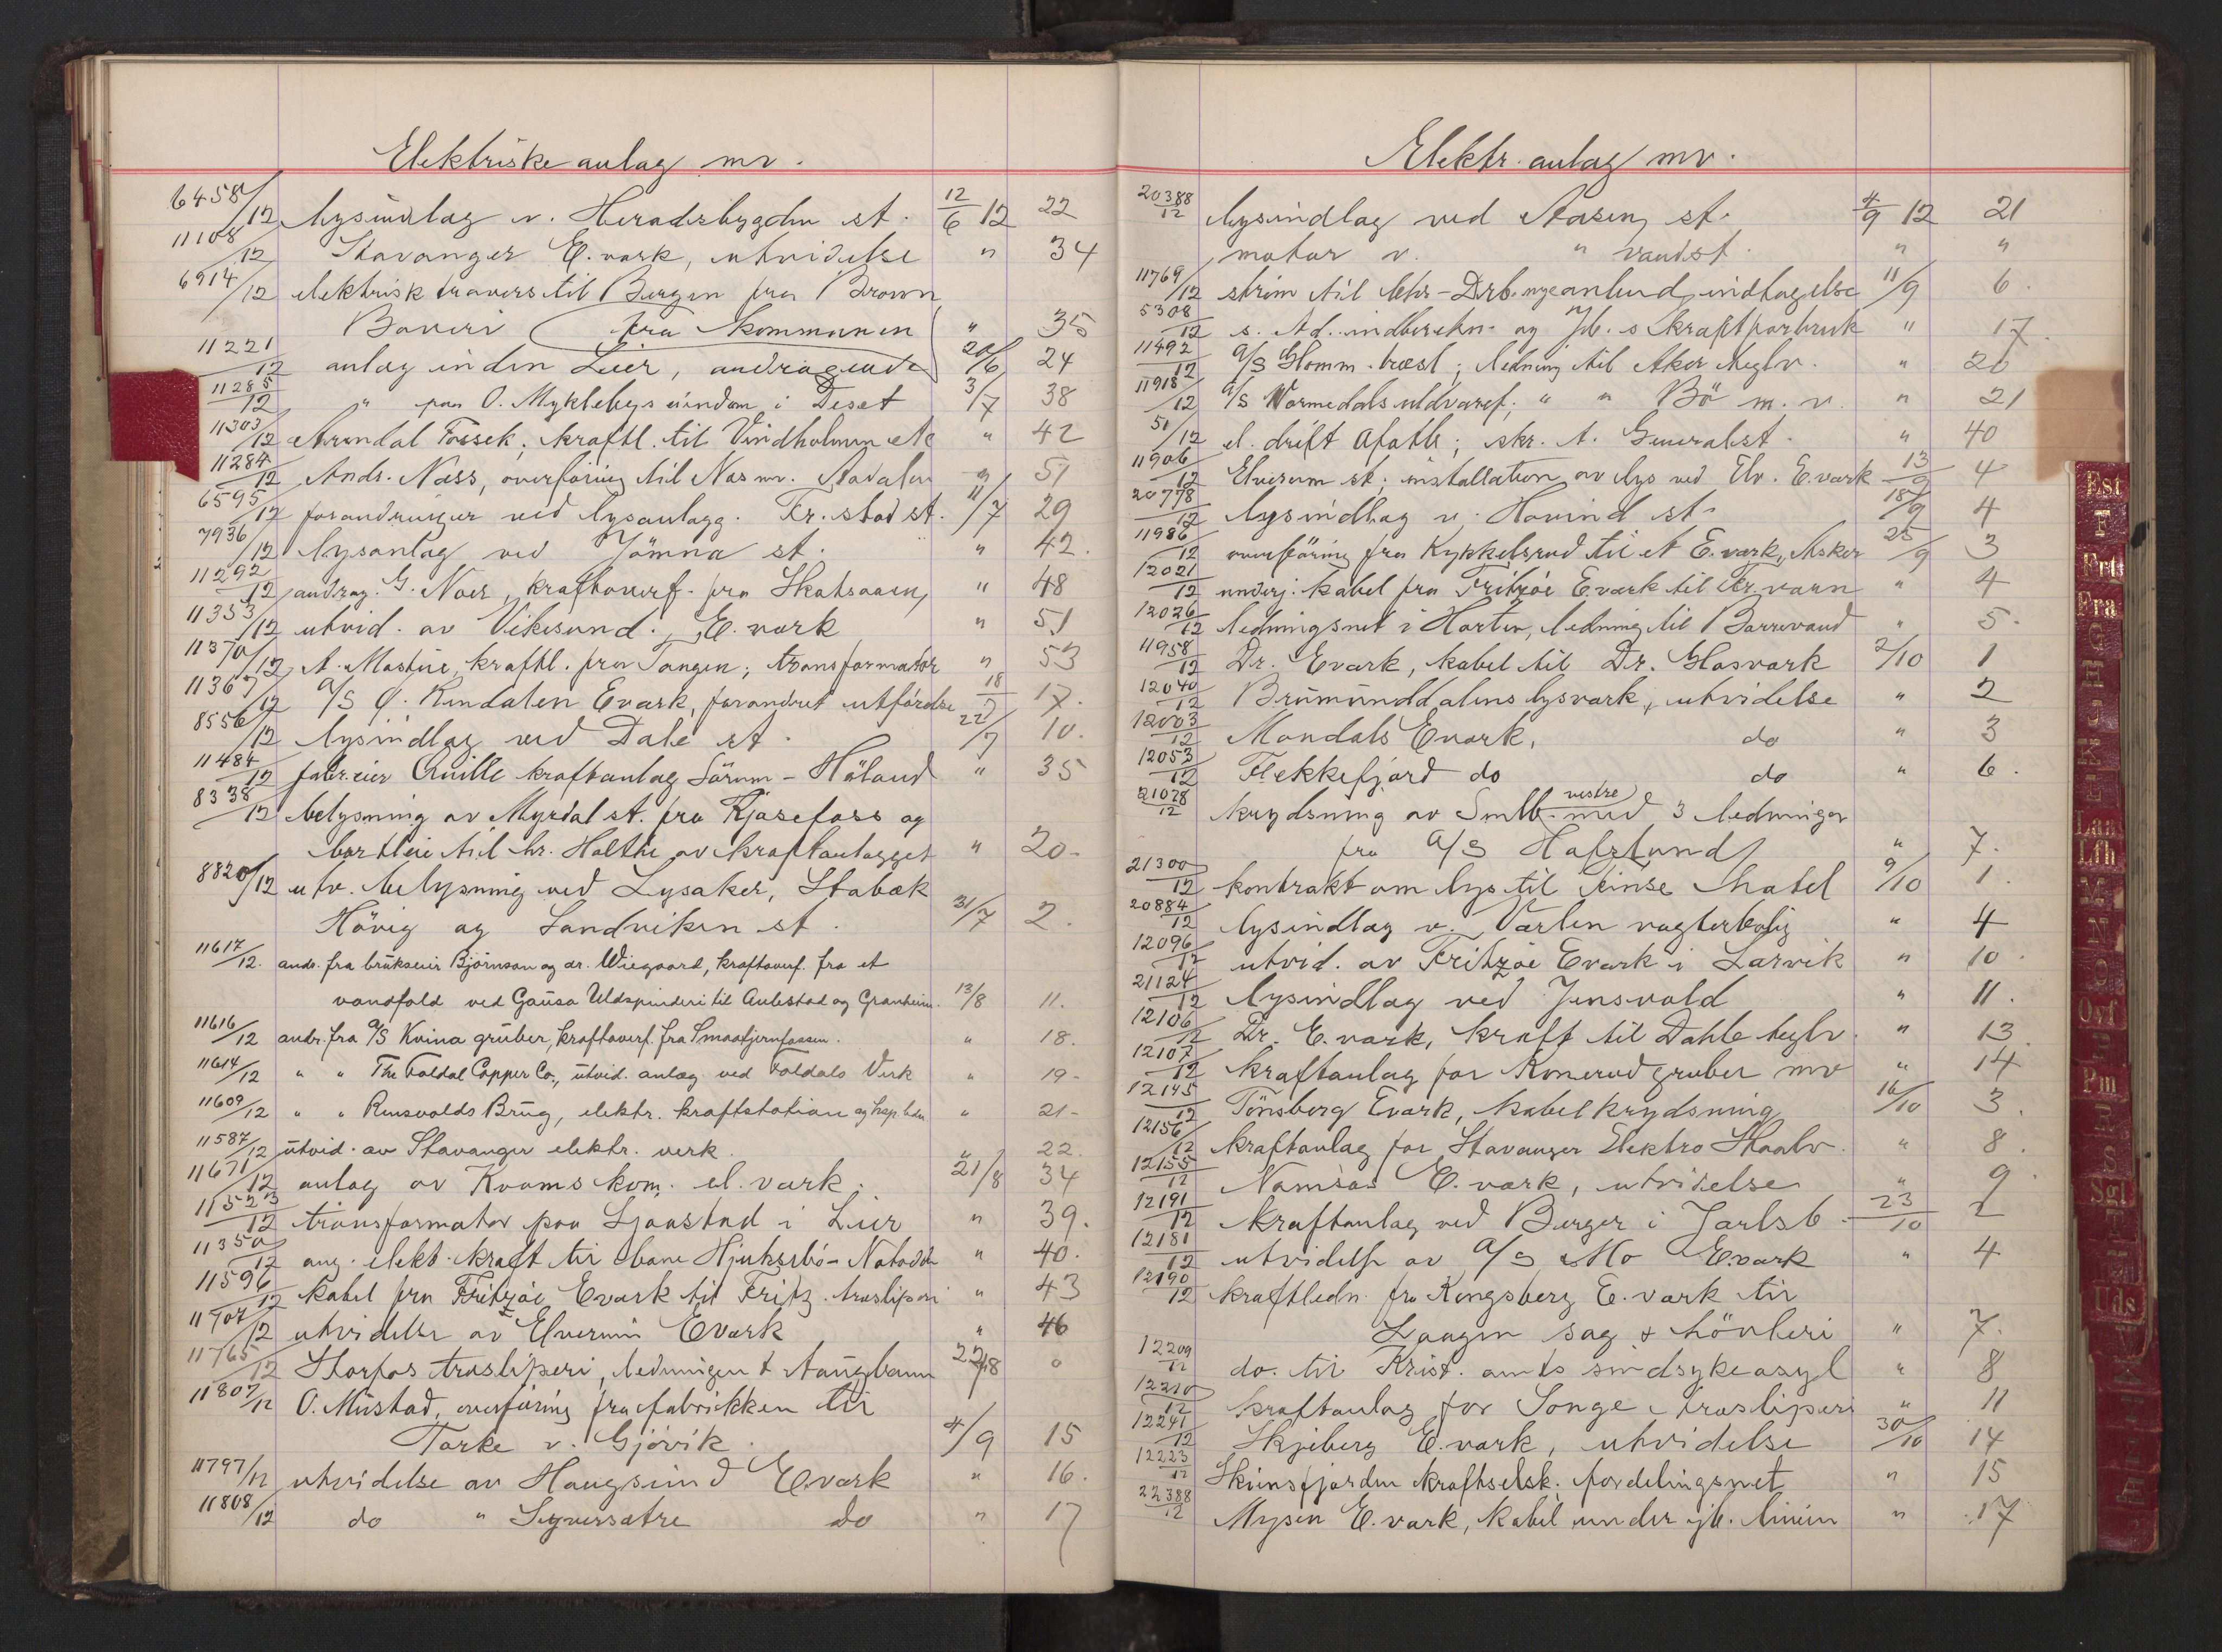 Elektriske anlæg mv.
6458/12 lysindlæg v. Heradsbygden st. 12/6 12 22
11108/12 Stavanger E.værk, utvidelse " 34
6914/12 elektrisk travers til Bergen fra Brown
Boveri (fra kommunen) " 35
11221/12 anlæg inden Lier, andragende 20/6 24
11285/12 " paa O. Myklebys eiendom i Deset 3/7 38
11303/12 Arendal Fossek; kraftl. til Vindholmen " 42
11284/12 Andr. Næss, overföring til Næs " 51
6595/12 forandringer ved lysanlægg. Fr.stad st. 11/7 29
7936/12 lysanlæg ved Jömna st. " 42.
11292/12 andrag. G. Noer, kraftoverf. fra " 48
11353/12 utvid. av Vikesund E.værk " 51
11370/12 kraftl. fra Tangen; transformator " 53
11367/12 A/S Rendalen Eværk, forandret utförelse 18/7 17.
8556/12 lysindlæg ved Dale st. 22/7 10.
11484/12 kraftanlæg Sörum - Höland " 35
8338/12 belysning av Myrdal st. fra Kjosefoss og
bortleie til hr. Holthe av kraftanlægget " 20-
8820/12 utv. belysning ved Lysaker, Stabæk
Hövig og Sandviken st. 31/7 2.
11617/12. andr. fra brukseier Björnson og dr. Wiegaard, kraftoverf. fra et
vandfald ved Gausa Uldspinderi til Aulestad og Granheim. 13/8 11.
11616/12 andr. fra A/S Kvina gruber, kraftoverf. fra Smaatjernfossen. " 18.
11614/12 " " The Foldal Copper Co., utvid. anlæg ved Foldals Verk " 19-
11609/12 " " Rensvolds Brug, elektr. kraftstation " 21-
11587/12 utvid. av Stavanger elektr. verk. " 22.
11671/12 anlæg av Kvams kom. el. værk. 21/8 34
11523/12 transformator paa Ljaastad i Lier " 39.
11350/12 ang. elekt. kraft til bane Hjuksebö - Notodden " 40.
11596/12 kabel fra Fritzöe Eværk til Fritz. træsliperi " 43
11707/12 utvidelse av Elverum Eværk " 46
11765/12 Storfos træsliperi, ledningen + taugbane 22/8 "
11807/12 O. Mustad, overföring fra fabrikken til
Törke v. Gjövik. 4/9 15
11797/12 utvidelse av Haugsund Eværk " 16.
11808/12 do " Syversætre do " 17
Elektr. anlæg mv.
20388/12 lysindlæg ved Aasen st. 4/9 12 21
motor v. " vandst. " "
11769/12 ström til indtagelse 11/9 6.
5308/12 og Jb. s kraftforbruk " 17.
11492/12 A/S Glomm. træsl; ledning til Aker teglv. " 20
11918/12 A/S Vormedals uldvaref; " " Bö m. v. " 21
50/12 el. drift Ofotb; skr. t. Generalst. " 40
11906/12 Elverum st; installation av lys ved Elv. E.værk 13/9 4
20778/12 lysindlæg v. Hovind st. 18/9 4
11986/12 overföring fra Kykkelsrud til et E.værk, Asker 25/9 3
12021/12 underj. kabel fra Fritzöe E.værk til Fr.værn " 4
12026/12 ledningsnet i Horten, ledning til Borrevand " 5.
11958/12 Dr. Eværk, kabel til Dr. Glasværk 2/10 1
12040/12 Brumunddalens lysværk, utvidelse " 2
12003/12 Mandals Eværk, do " 3
12053/12 Flekkefjord do do " 6.
21028/12 krydsning av Smlb. vestre med 3 ledninger
fra A/S Hafslund " 7.
21300/12 kontrakt om lys til Finse hotel 9/10 1.
20884/12 lysindlæg v. Varlen vagterbolig " 4
12096/12 utvid. av Fritzöe Eværk i Larvik " 10.
21124/12 lysindlæg ved Jensvold " 11.
12106/12 Dr. E.værk, kraft til Dahle teglv. " 13
12107/12 kraftanlæg for Konerud gruber mv " 14
12145/12 Tönsberg Eværk, kabelkrydsning 16/10 3.
12156/12 kraftanlæg for Stavanger Elektro Staalv. " 8.
12155/12 Namsos E.værk, utvidelse " 9.
12191/12 kraftanlæg ved Berger i Jarlsb. 23/10 2
12181/12 utvidelse av A/S Mo Eværk " 4
12190/12 kraftledn. fra Kongsberg E.værk til
Laagen sag & hövleri " 7.
12209/12 do. til Krist. amts sindsykeasyl " 8
12210/12 kraftanlæg for Songe træsliperi " 11
12241/12 Skjeberg E.værk, utvidelse 30/10 14
12223/12 Skiensfjorden kraftselsk. fordelingsnet " 15
22388/12 Mysen E.værk, kabel under jb. linien " 17
Est
F
Frt
Fra
G
H
J
K
L
Lan
Lfh
M
N
O
Ovf
P
Pm
R
S
Sgl
T
Uds